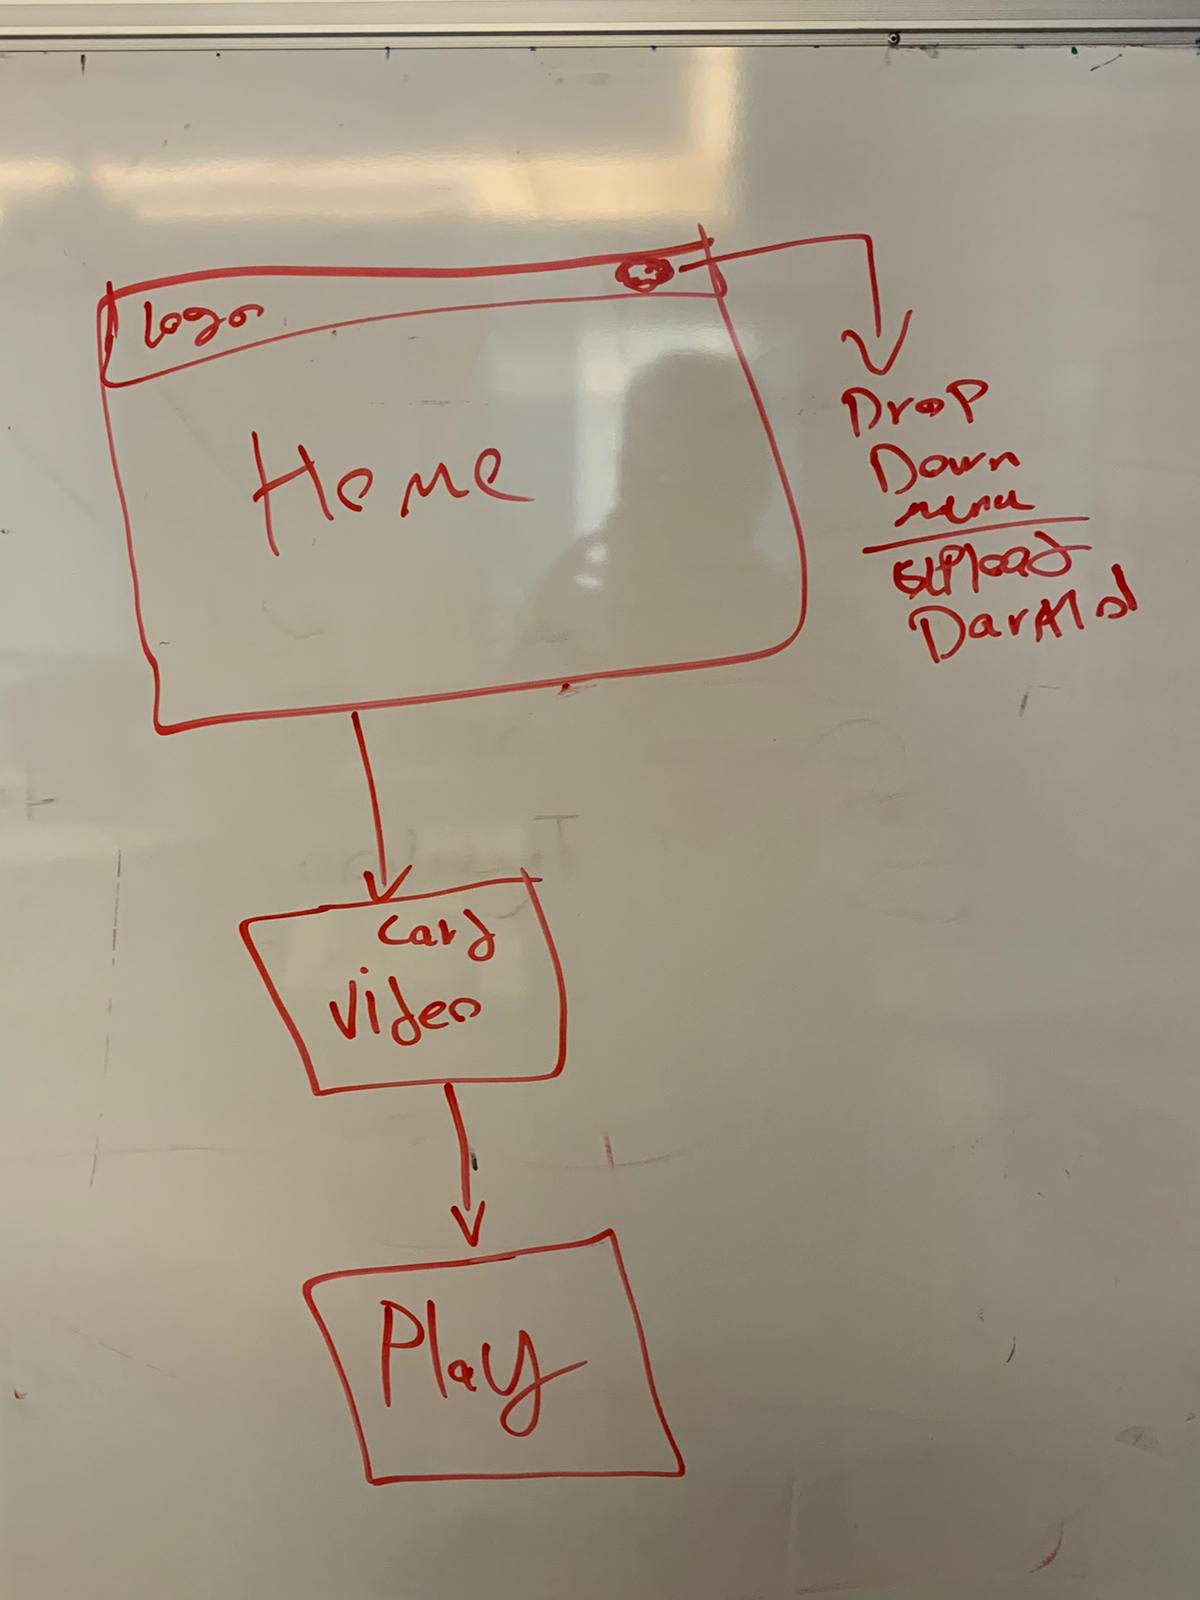 Logo
Home
Drop
Down
menu
Upload
Card
Video
Play